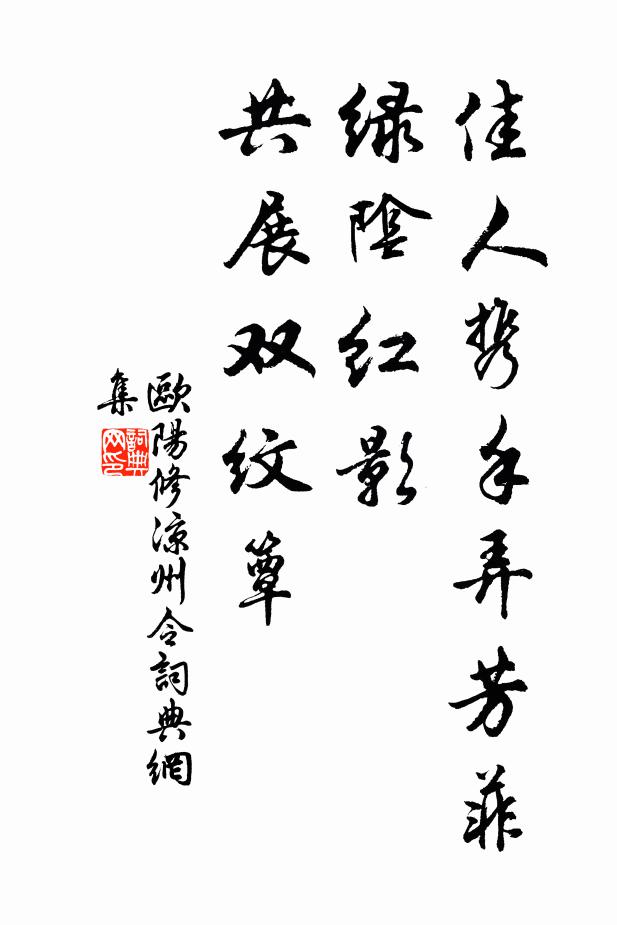 佳人携手弄芳菲
绿陰红影
共展双纹簟
歐陽修凉州令詞典網
集
詞典
网印